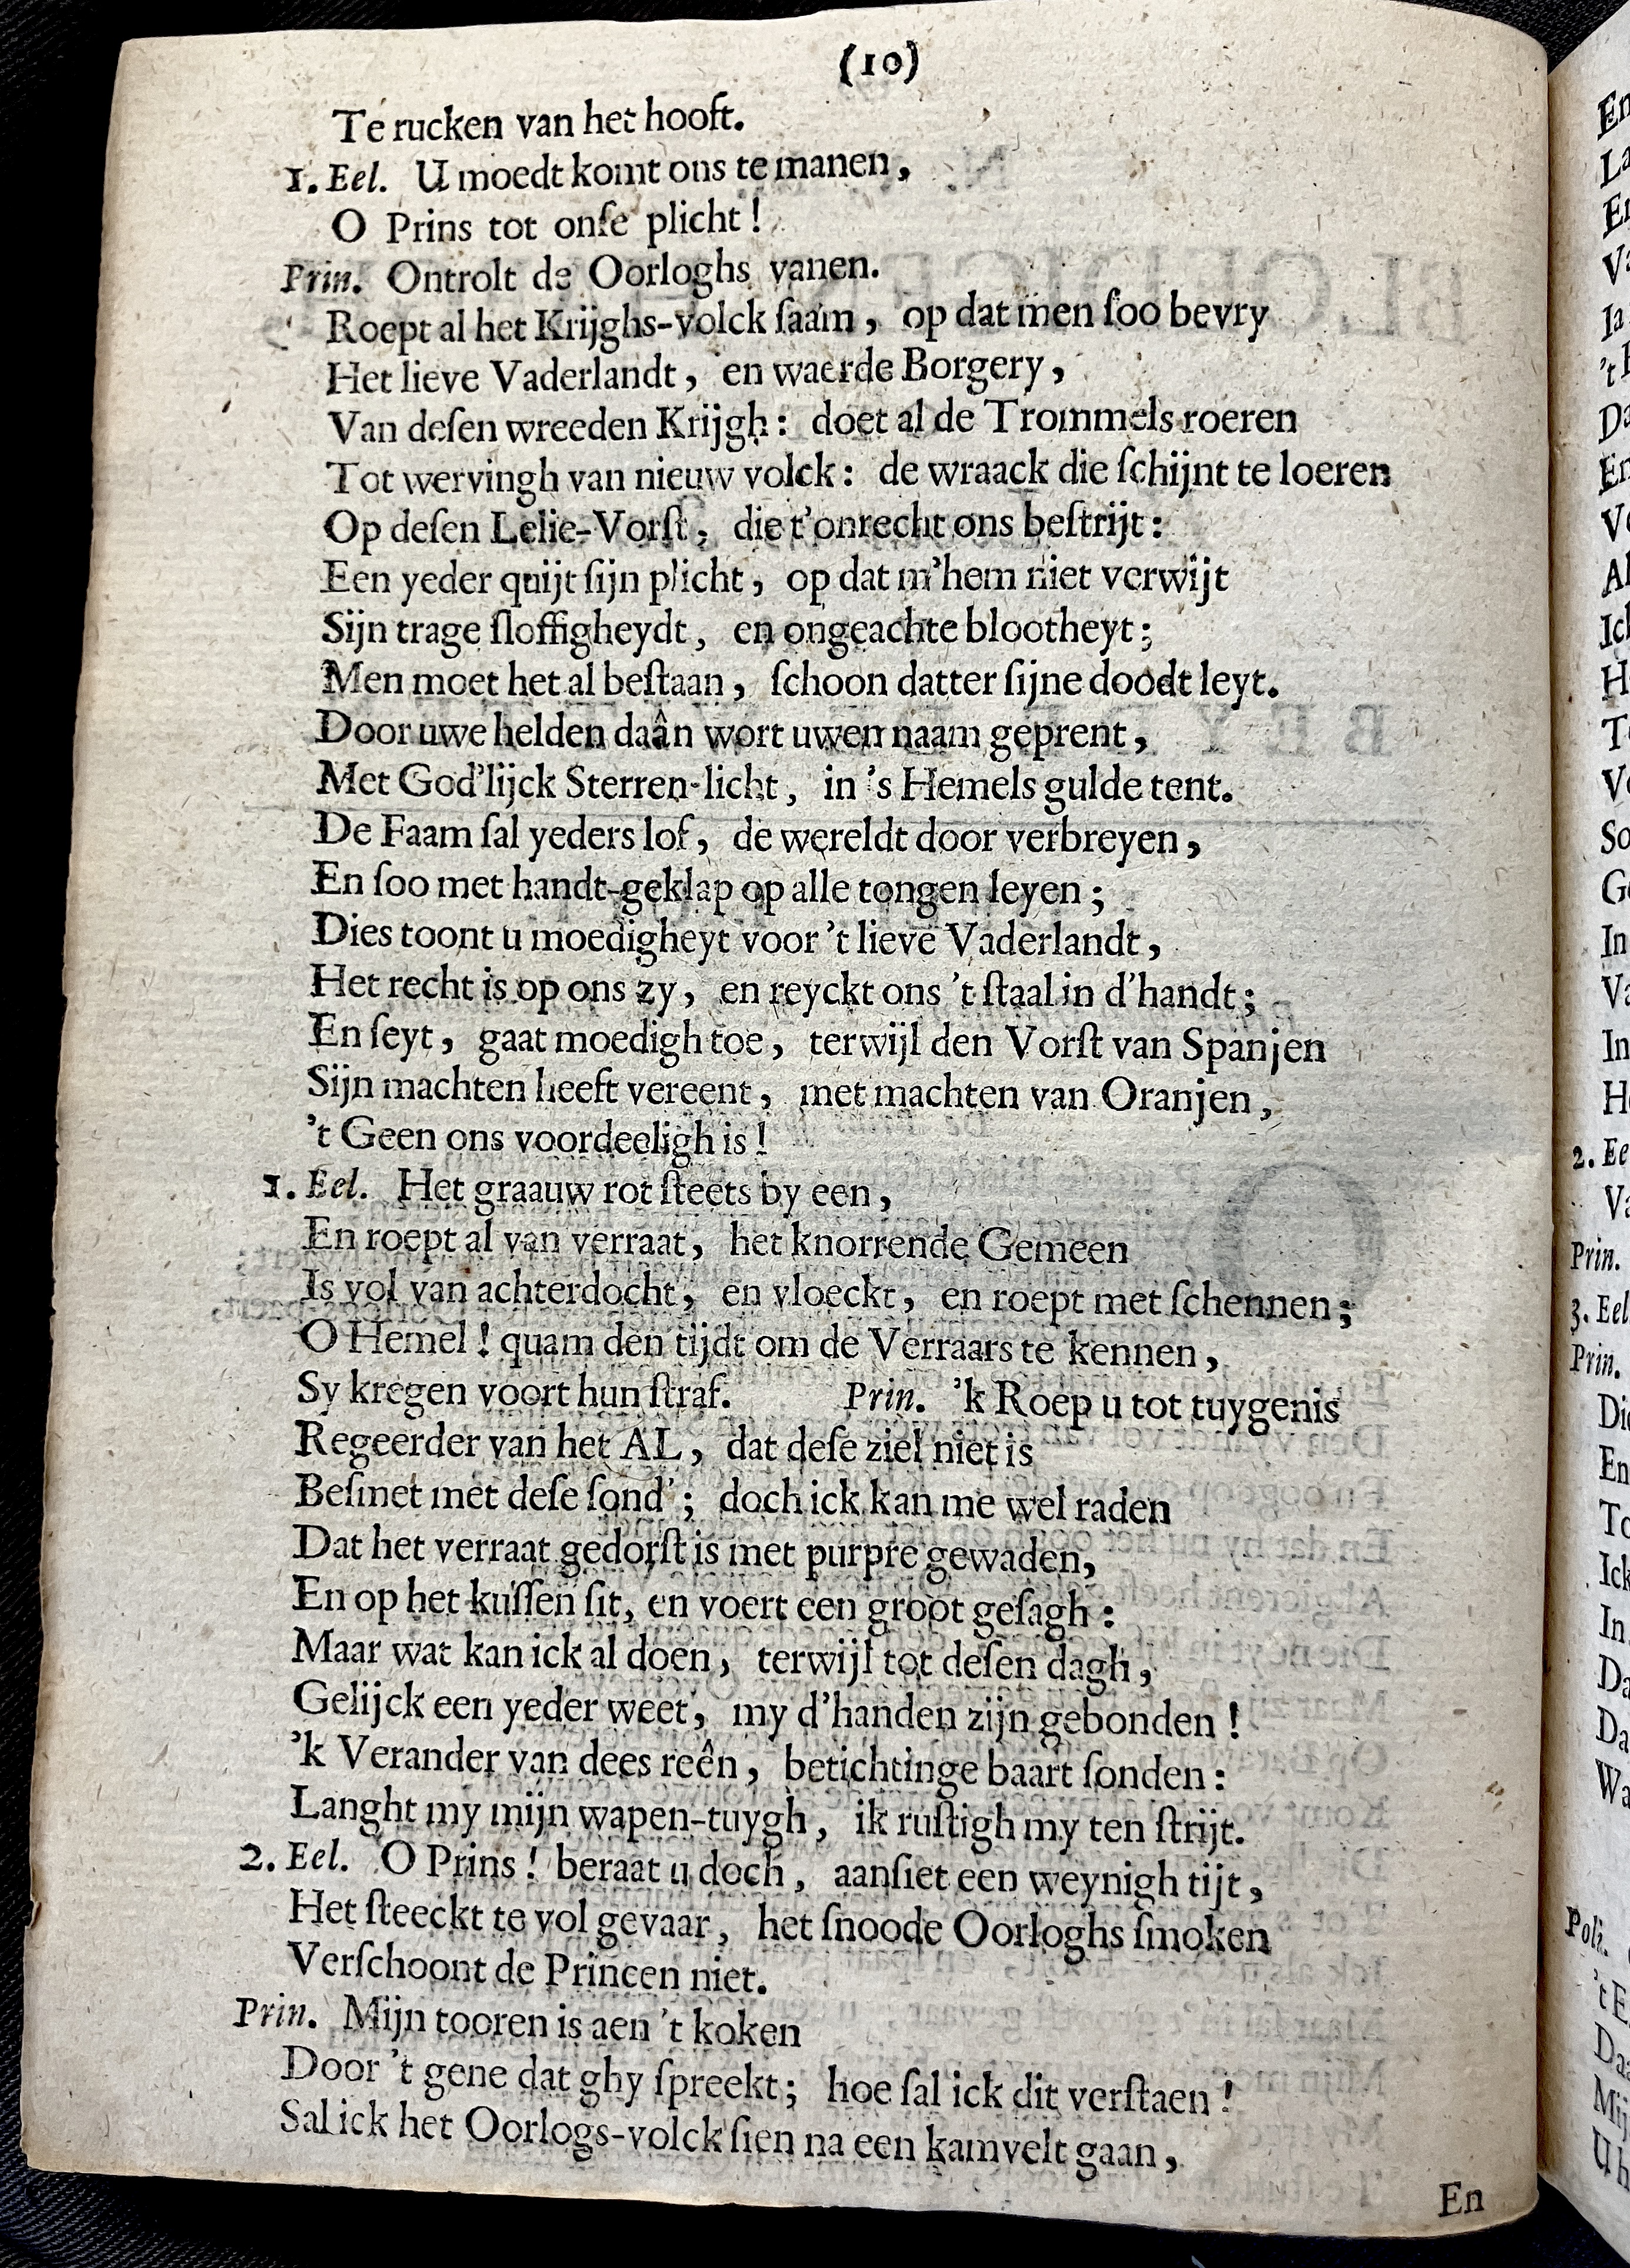 (10)
Te rucken van het hooft.
1. Eel. U moedt komt ons te manen,
O Prins tot onſe plicht!
Prin. Ontrolt de Oorloghs vanen.
Roept al het Krijghs-volck ſaam, op dat men ſoo bevry
Het lieve Vaderlandt, en waerde Borgery,
Van deſen wreeden Krijgh: doet al de Trommels roeren
Tot wervingh van nieuw volck: de wraack die ſchijnt te loeren
Op deſen Lelie-Vorſt, die t'onrecht ons beſtrijt:
Een yeder quijt ſijn plicht, op dat m'hem niet verwijt
Sijn trage ſloffigheydt, en ongeachte blootheyt;
Men moet het al beſtaan, ſchoon datter ſijne doodt leyt.
Door uwe helden daân wort uwen naam geprent,
Met God'lijck Sterren-licht, in 's Hemels gulde tent.
De Faam ſal yeders lof, de wereldt door verbreyen,
En ſoo met handt-geklap op alle tongen leyen;
Dies toont u moedigheyt voor 't lieve Vaderlandt,
Het recht is op ons zy, en reyckt ons 't ſtaal in d'handt;
En ſeyt, gaat moedigh toe, terwijl den Vorſt van Spanjen
Sijn machten heeft vereent, met machten van Oranjen,
't Geen ons voordeeligh is!
1. Eel. Het graauw rot ſteets by een,
En roept al van verraat, het knorrende Gemeen
Is vol van achterdocht, en vloeckt, en roept met ſchennen;
O Hemel! quam den tijdt om de Verraars te kennen,
Sy kregen voort hun ſtraf. Prin. 'k Roep u tot tuygenis
Regeerder van het AL, dat deſe ziel niet is
Beſmet met deſe ſond'; doch ick kan me wel raden
Dat het verraat gedorſt is met purpre gewaden,
En op het kuſſen ſit, en voert een groot geſagh:
Maar wat kan ick al doen, terwijl tot deſen dagh,
Gelijck een yeder weet, my d'handen zijn gebonden!
'k Verander van dees reên, betichtinge baart ſonden:
Langht my mijn wapen-tuygh, ik ruſtigh my ten ſtrijt.
2. Eel. O Prins! beraat u doch, aanſiet een weynigh tijt,
Het ſteeckt te vol gevaar, het ſnoode Oorloghs ſmoken
Verſchoont de Princen niet.
Prin. Mijn tooren is aen 't koken
Door 't gene dat ghy ſpreekt; hoe ſal ick dit verſtaen!
Sal ick het Oorlogs-volck ſien na een kamvelt gaan,
En